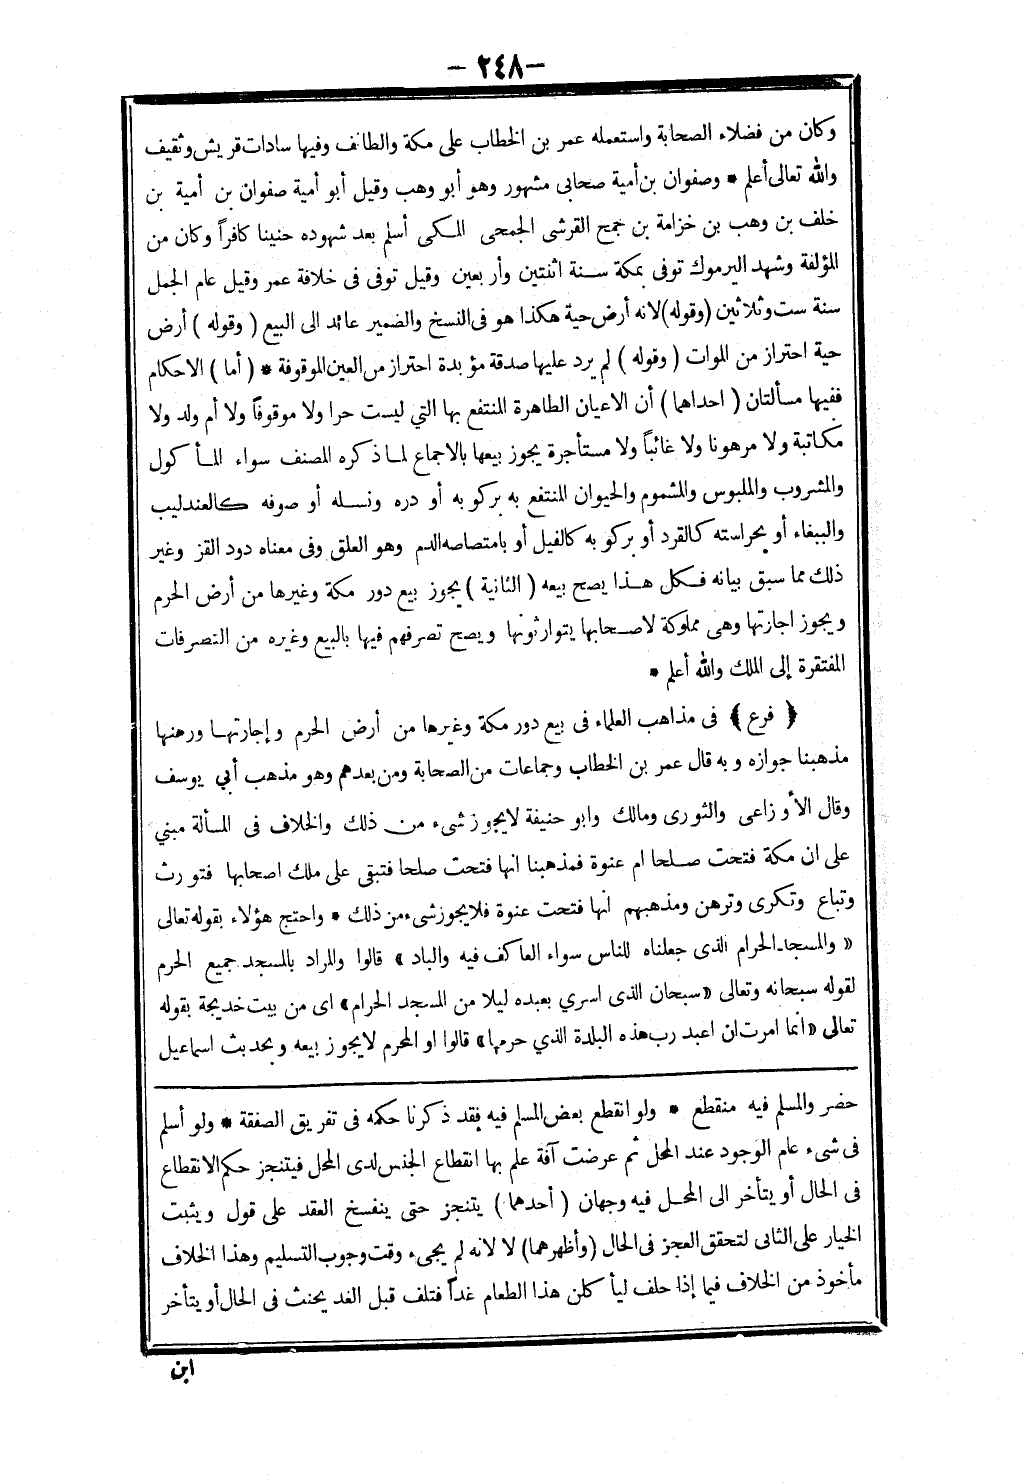 — ٢٤٨ —
وكان من فضلاء الصحابة واستعمله عمر بن الخطاب على مكة والطائف وفيها سادات قريش وثقيف
والله تعالى أعلم * وصفوان بن أمية صحابى مشهور وهو أبو وهب وقيل أبو أمية صفوان بن أمية بن
خلف بن وهب بن خزامة بن جمح القرشى الجمحى المكى أسلم بعد شهوده حنينا كافراً وكان من
المؤلفة وشهد اليرموك توفى بمكة سنة اثنتين وأربعين وقيل توفى فى خلافة عمر وقيل عام الجمل
سنة ست وثلاثين (وقوله) لانه أرض حية هكذا هو فى النسخ والضمير عائد الى البيع (وقوله) أرض
حية احتراز من الموات (وقوله) لم يرد عليها صدقة مؤبدة احتراز من العين الموقوفة * (أما) الاحكام
ففيها مسألتان (احداهما) أن الاعيان الطاهرة المنتفع بها التي ليست حرا ولا موقوفاً ولا أم ولد ولا
مكاتبة ولا مرهونا ولا غائباً ولا مستأجرة يجوز بيعها بالاجماع لما ذكره المصنف سواء المأكول
والمشروب والملبوس والمشموم والحيوان المنتفع به بركوبه أو دره ونسله أو صوفه كالعندليب
والببغاء أو بحراسته كالقرد أو بركوبه كالفيل أو بامتصاصه الدم وهو العلق وفى معناه دود القز وغير
ذلك مما سبق بيانه فكل هذا يصح بيعه (الثانية) يجوز بيع دور مكة وغيرها من أرض الحرم
ويجوز اجازتها وهى مملوكة لاصحابها يتوارثونها ويصح تصرفهم فيها بالبيع وغيره من التصرفات
المفتقرة إلى الملك والله أعلم *
﴿ فرع ﴾ فى مذاهب العلماء فى بيع دور مكة وغيرها من أرض الحرم وإجارتها ورهنها
مذهبنا جوازه وبه قال عمر بن الخطاب وجماعات من الصحابة ومن بعدهم وهو مذهب أبي يوسف
وقال الأوزاعى والثورى ومالك وابو حنيفة لايجوز شىء من ذلك والخلاف فى المسألة مبني
على ان مكة فتحت صلحا ام عنوة فمذهبنا انها فتحت صلحا فتبقى على ملك اصحابها فتورث
وتباع وتكرى وترهن ومذهبهم انها فتحت عنوة فلايجوز شىء من ذلك * واحتج هؤلاء بقوله تعالى
« والمسجد الحرام الذى جعلناه للناس سواء العاكف فيه والباد » قالوا والمراد بالمسجد جميع الحرم
لقوله سبحانه وتعالى «سبحان الذى اسري بعبده ليلا من المسجد الحرام» اى من بيت خديجة بقوله
تعالى «انما امرت ان اعبد رب هذه البلدة الذي حرمها» قالوا او المحرم لايجوز بيعه وبحديث اسماعيل
حضر والمسلم فيه منقطع * ولو انقطع بعض المسلم فيه فقد ذكرنا حكمه فى تفريق الصفقة * ولو أسلم
فى شىء عام الوجود عند المحل ثم عرضت آفة علم بها انقطاع الجنس لدى المحل فيتنجز حكم الانقطاع
فى الحال أو يتأخر الى المحل فيه وجهان (أحدهما) يتنجز حتى ينفسخ العقد على قول ويثبت
الخيار على الثانى لتحقق العجز فى الحال (وأظهرهما) لا لانه لم يجىء وقت وجوب التسليم وهذا الخلاف
مأخوذ من الخلاف فيما إذا حلف ليأكلن هذا الطعام غداً فتلف قبل الغد يحنث فى الحال أو يتأخر
ابن